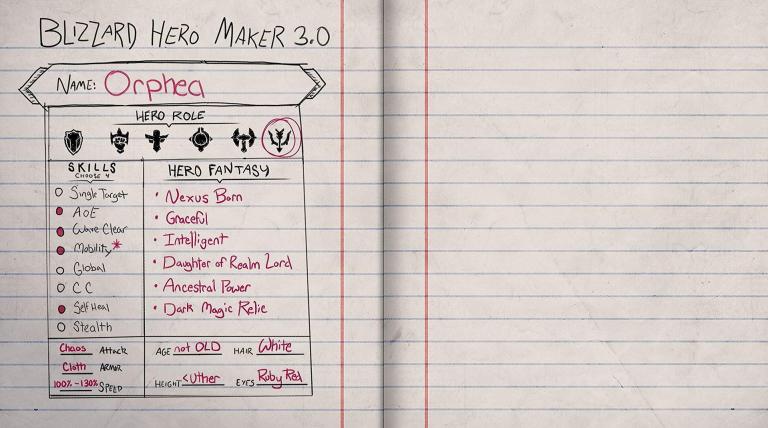 BLIZZARD HERO MAKER 3.0
NAME: Orphea
HERO ROLE
SKILLS
CHOOSE 4
Single Target
AOE
Wave Clear
Mobility*
Global
CC
Self Heal
Stealth
HERO FANTASY
• Nexus Born
• Graceful
• Intelligent
• Daughter of Realm Lord
• Ancestral Power
• Dark Magic Relic
Chaos Attack
Cloth ARMOR
100%-130% SPEED
AGE not OLD HAIR White
HEIGHT <Uther EYES Ruby Red